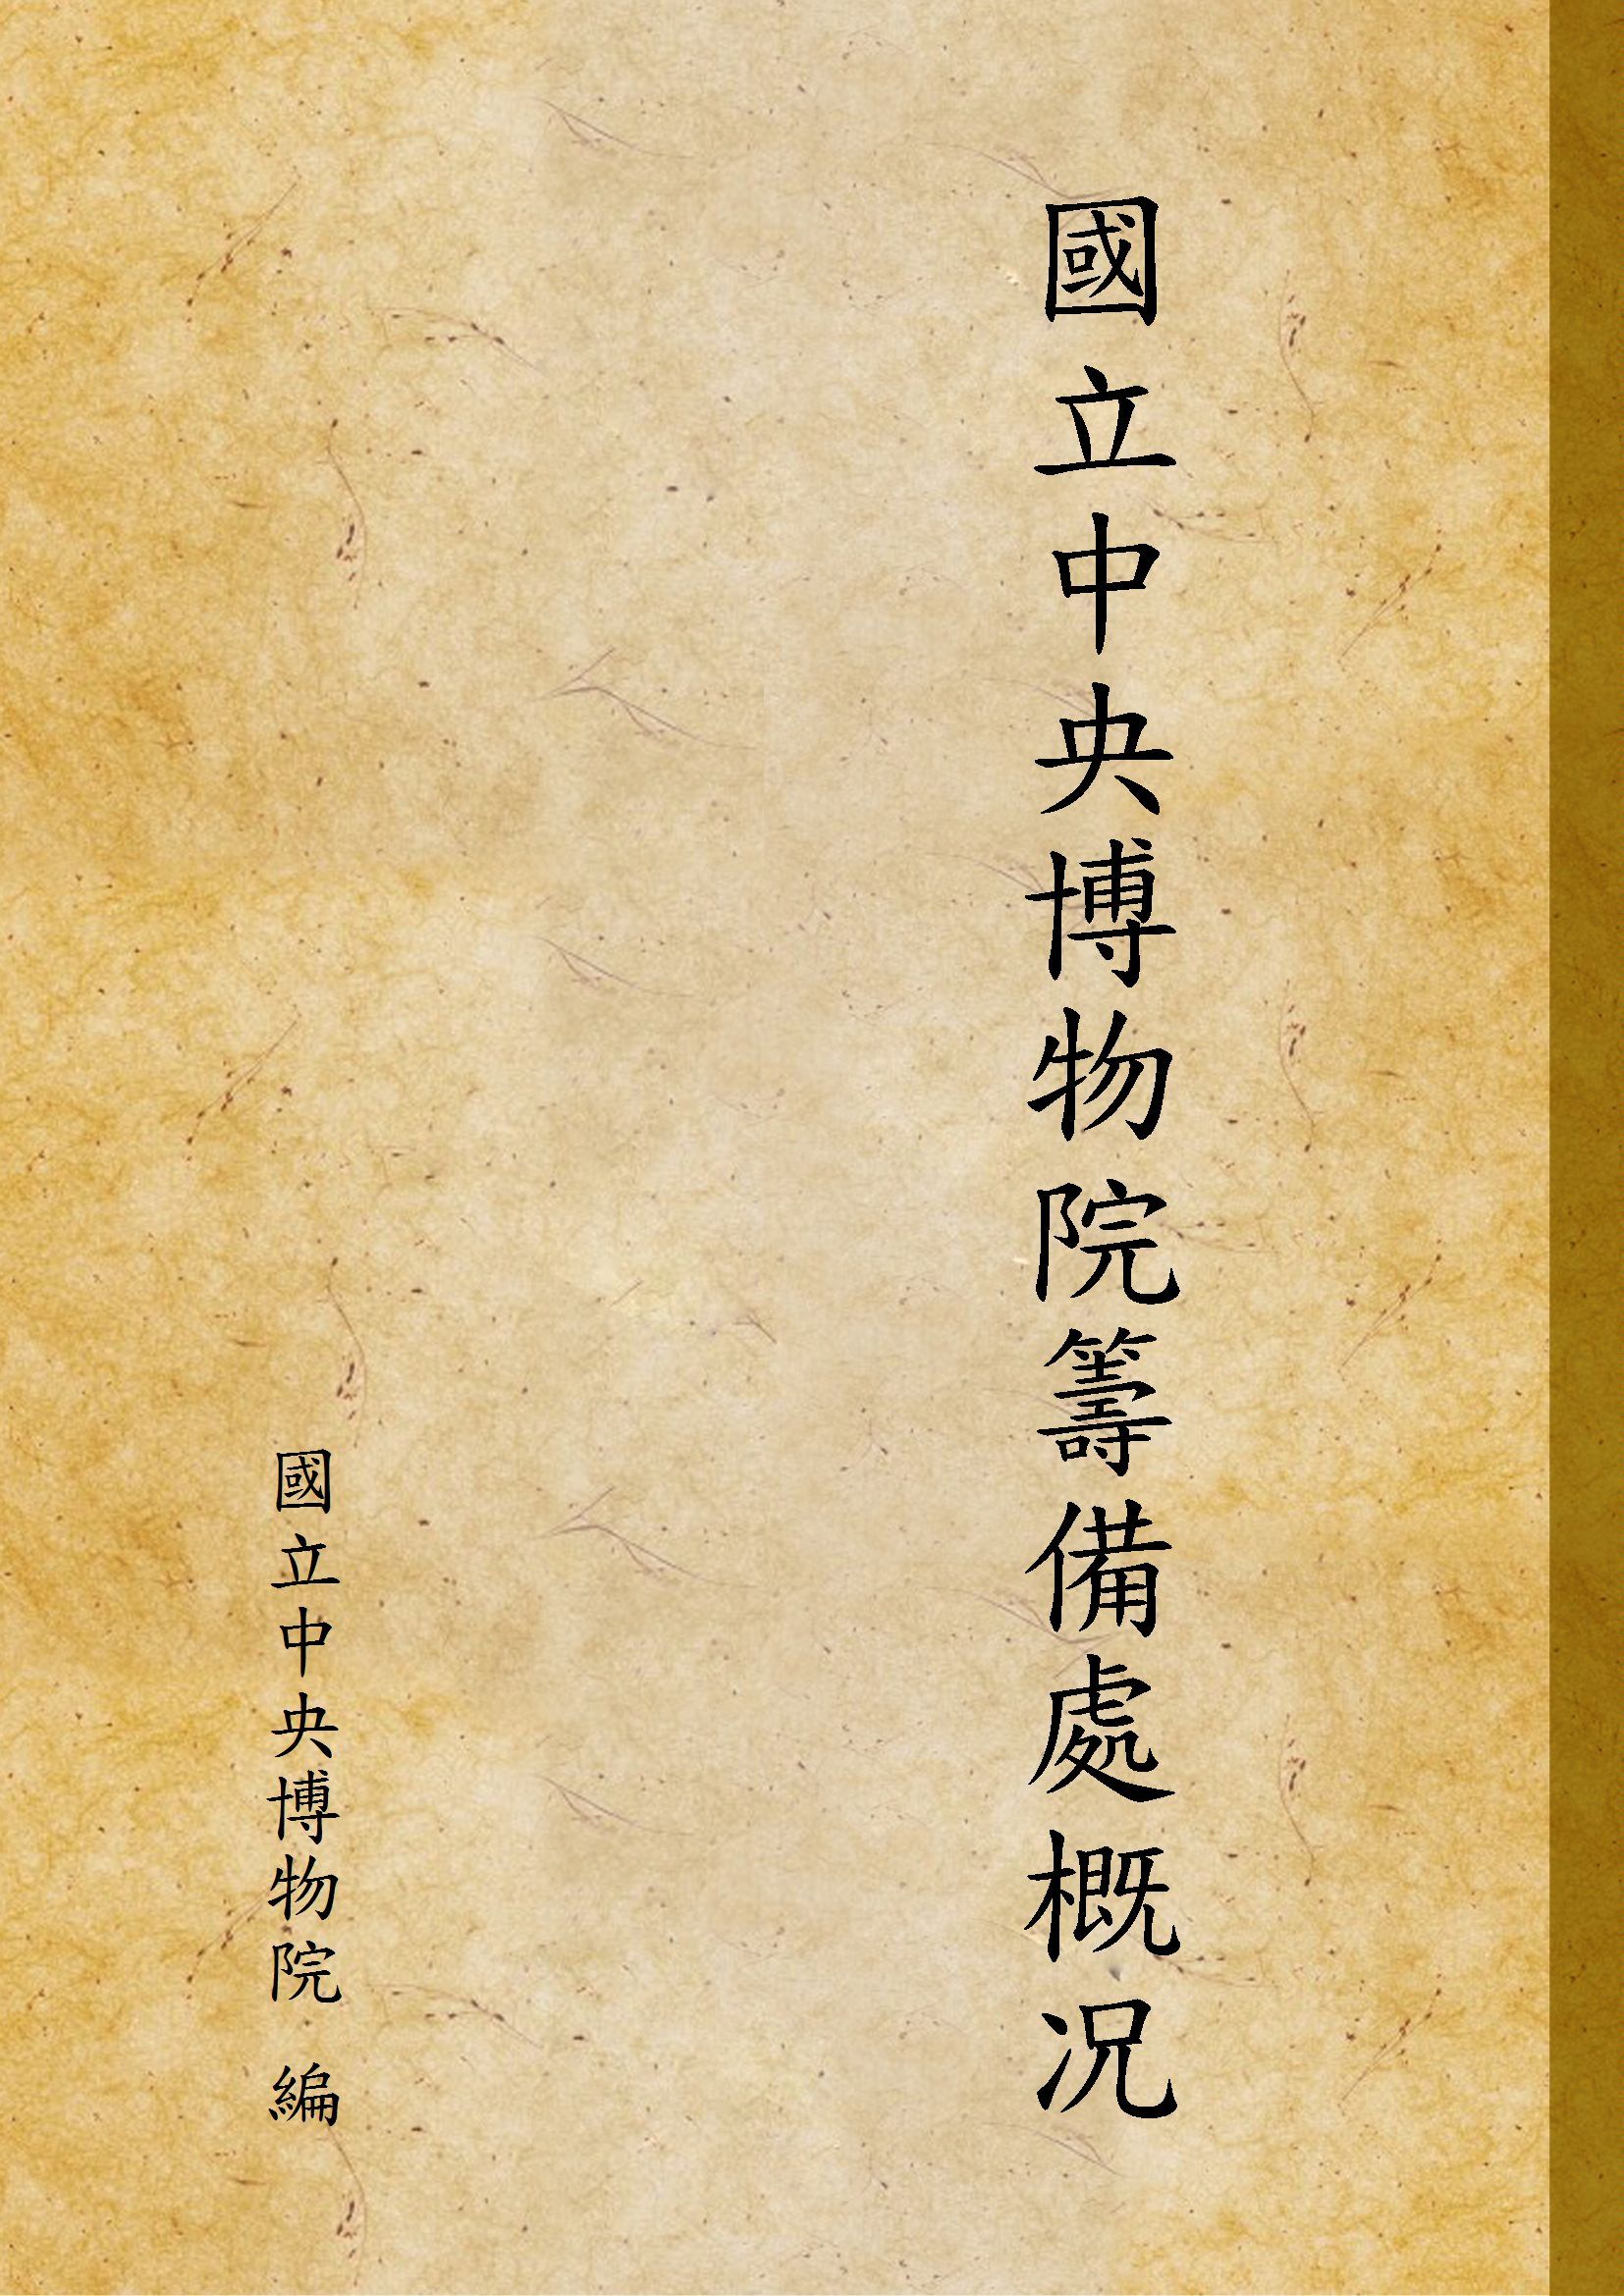 國立中央博物院籌備處概况
國立中央博物院 編